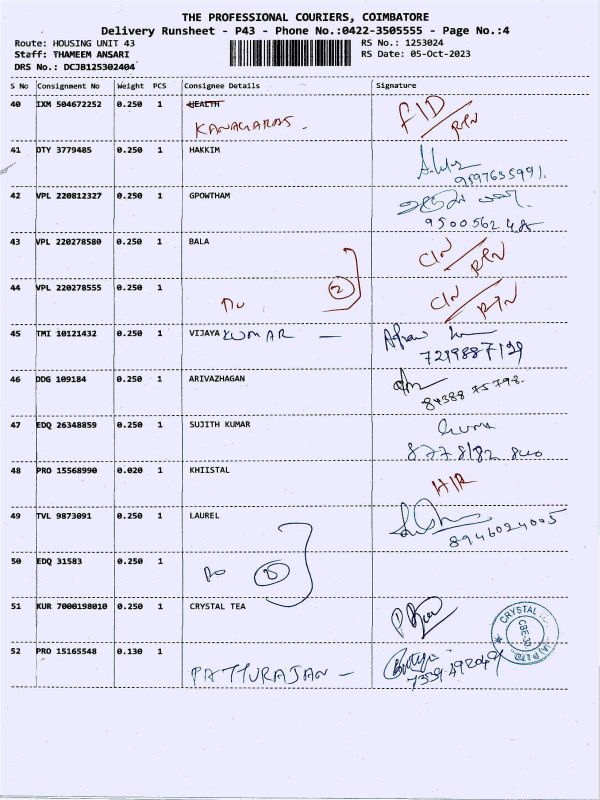 THE PROFESSIONAL COURIERS, COIMBATORE
Delivery Runsheet - P43 - Phone No.:0422-3505555 - Page No.:4
Route: HOUSING UNIT 43 RS No.: 1253024
Staff: THAMEEM ANSARI RS Date: 05-Oct-2023
DRS No.: DCJB125302404
S No Consignment No Weight PCS Consignee Details Signature
40 IXM 504672252 0.250 1 HEALTH
KANAGARAS - FID/RPN
41 DTY 3779485 0.250 1 HAKKIM
9597635991.
42 VPL 220812327 0.250 1 GPOWTHAM
9500562485
43 VPL 220278580 0.250 1 BALA CIN/RPN
44 VPL 220278555 0.250 1 CIN/RPN
Do 2
45 TMI 10121432 0.250 1 VIJAYA KUMAR -
7219887129
46 DDG 109184 0.250 1 ARIVAZHAGAN
84388 75798.
47 EDQ 26348859 0.250 1 SUJITH KUMAR
8778182 840
48 PRO 15568990 0.020 1 KHIISTAL HIR
49 TVL 9873091 0.250 1 LAUREL
8946024005
50 EDQ 31583 0.250 1
Do
51 KUR 7000198010 0.250 1 CRYSTAL TEA
CRYSTAL
CBE-30
P LTD.
52 PRO 15165548 0.130 1
PATTURAJAN -